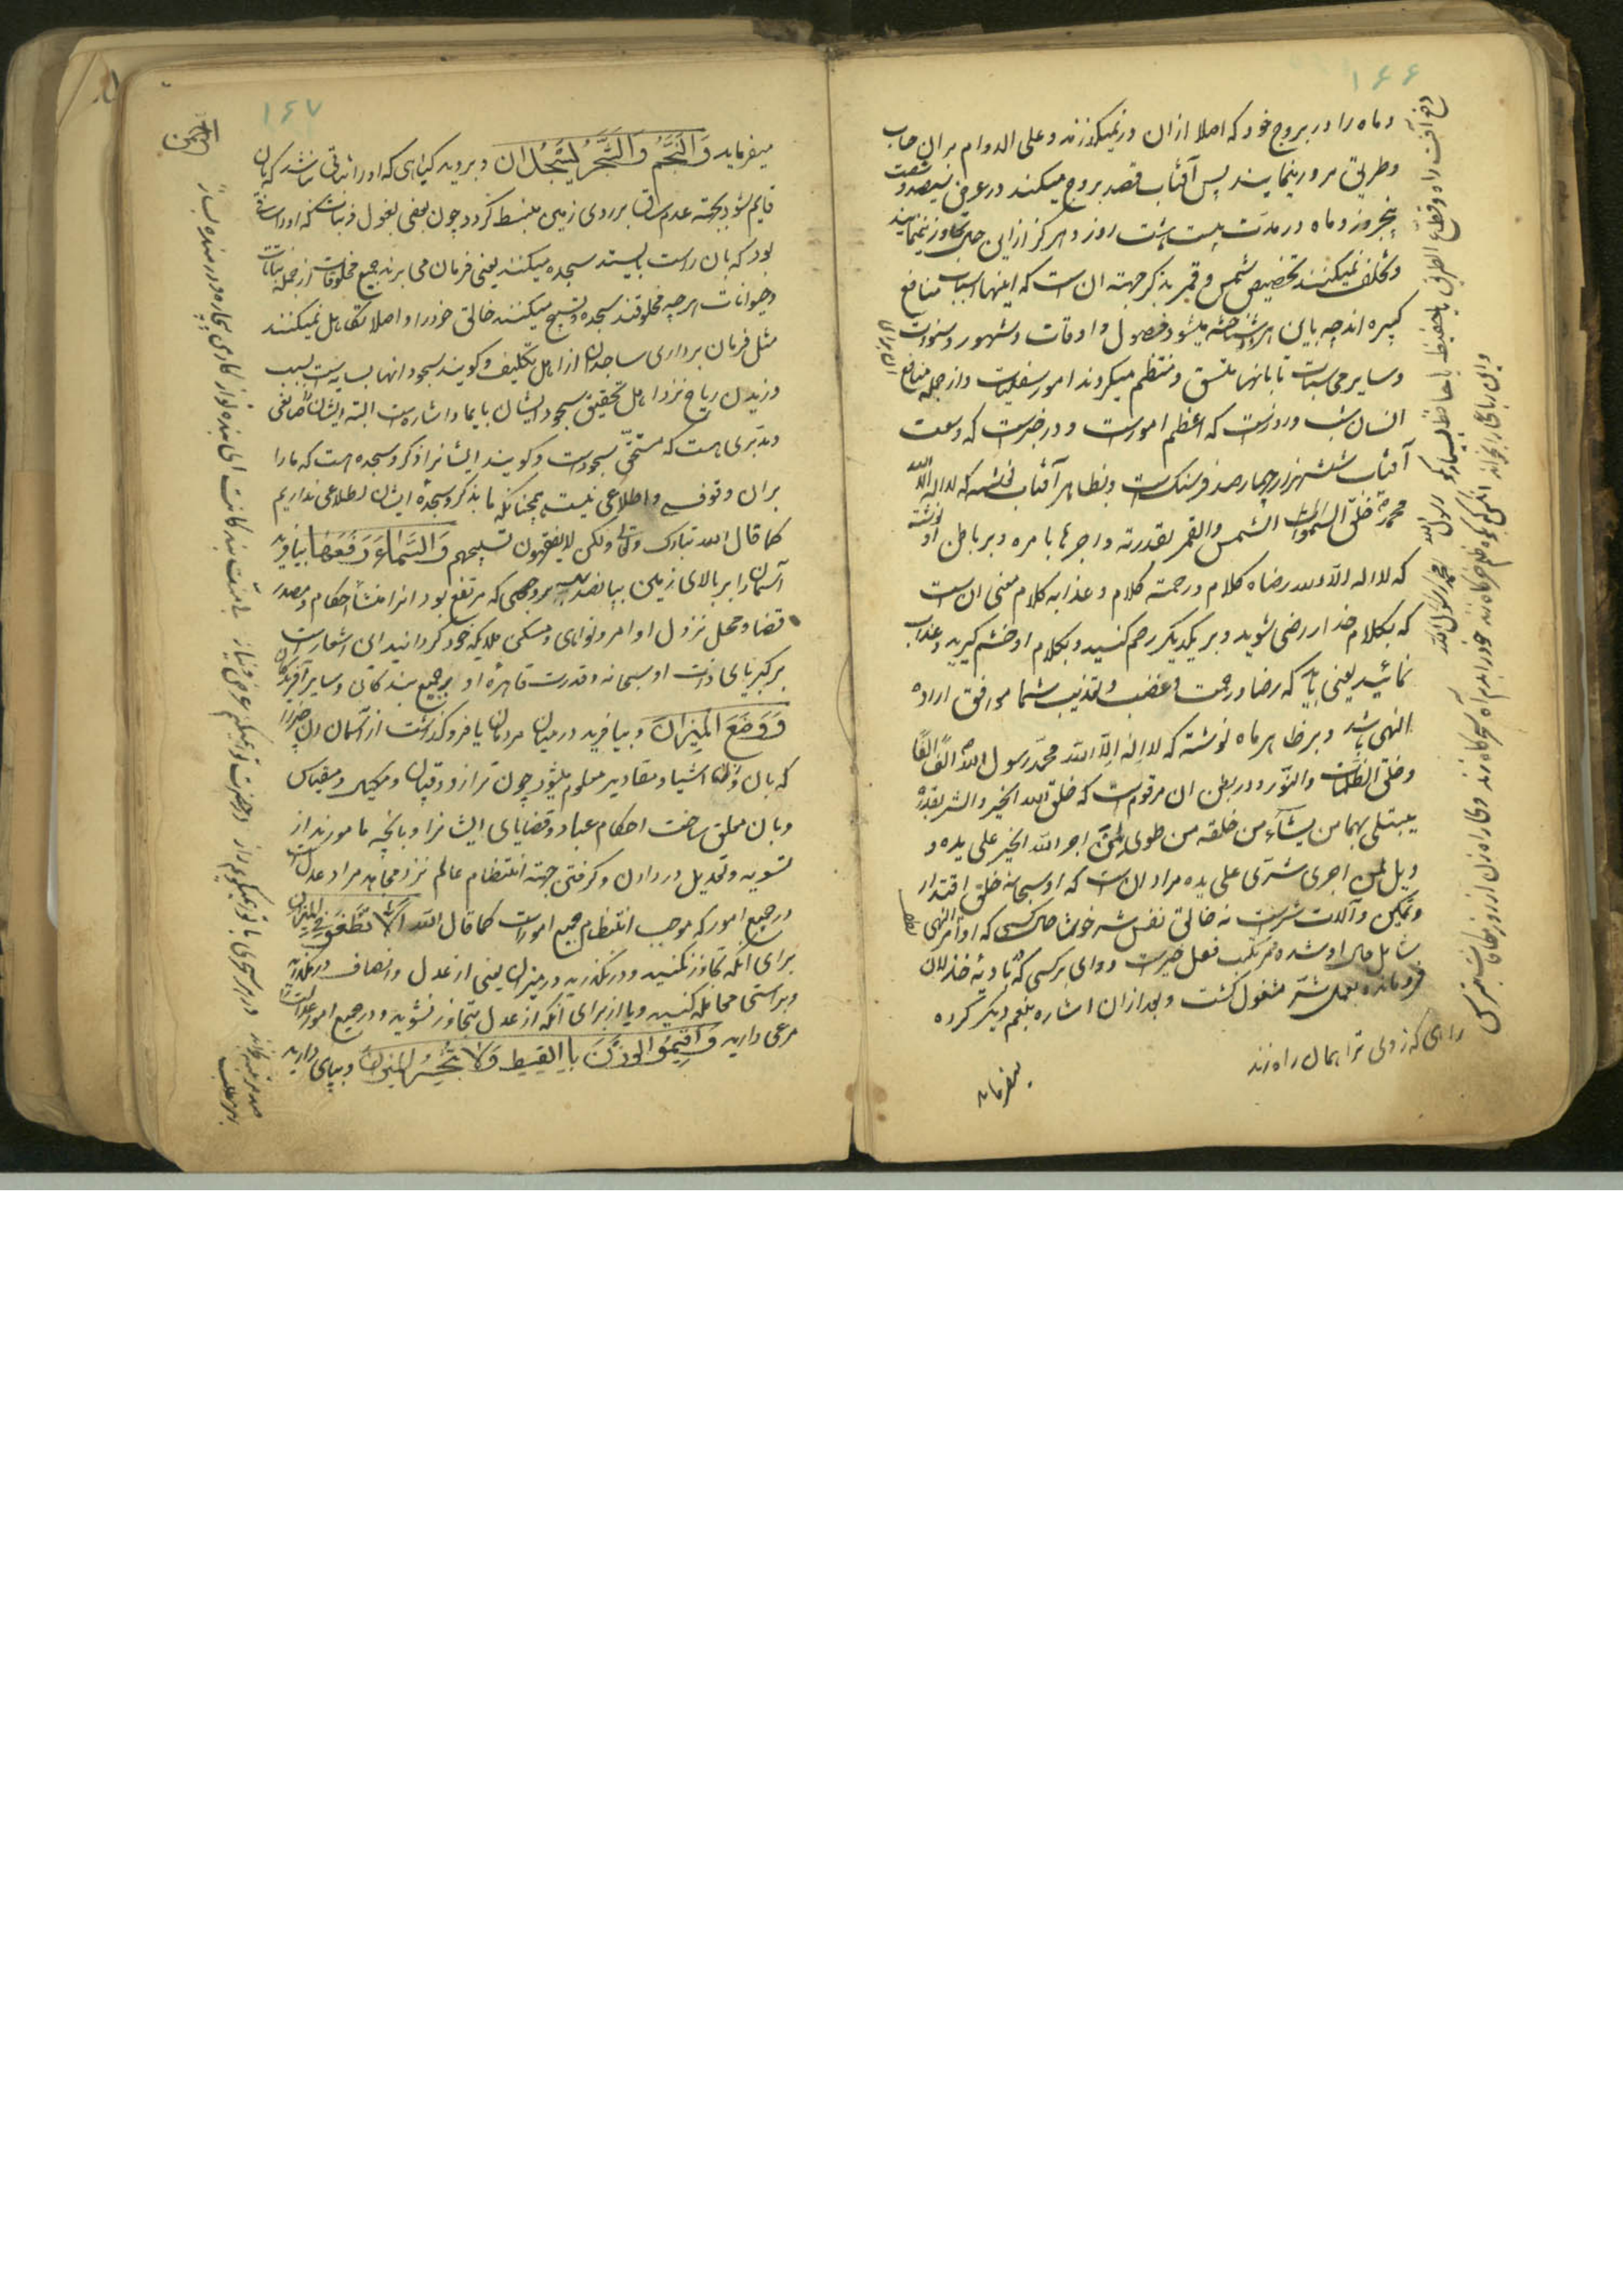 ۱۶۶
و ماه را در بروج خود که اصلا ازان در نمیگذرند و علی الدوام بران حساب
و طریق مرور مینمایند پس آفتاب قصد بروج میکند در عرض سیصد و شصت
پنجروز و ماه در مدت بیست هشت روز و هرگز ازین حساب تجاوز نمینمایند
و تخلف نمیکنند تخصیص شمس و قمر بذکر جهته ان است که اینها اسباب منافع
کبیره اند چه باین هر دو شناخته میشود فصول و اوقات و شهور و سنوات
و سایر حسابات تا بانها متسق و منتظم میگردند امور سفلیات و از جمله منافع
انسان شب و روزست که اعظم امورست و در خبرست که وسعت
آفتاب ششهزار و چهارصد فرسنک است و بظاهر آفتاب نوشته که لا اله الا الله
محمد خلق السموات الشمس والقمر بقدرته و اجرها بامره و بر باطن او نوشته
که لا اله الا الله رضاه کلام و رحمته کلام و عذابه کلام معنی ان است
که بکلام خدا راضی شوید و بر یکدیگر رحم کنید و بکلام او خشم گیرید و عذاب
نمائید یعنی باید که رضا و رحمت و غضب و تعذیب شما موافق اراده
الهی باشد و بر ظاهر ماه نوشته که لا اله الا الله محمد رسول الله
و خلق الظلمات والنور و در بطن ان مرقوم است که خلق الله الخیر والشر بقدرته
یبتلی بهما من یشآء من خلقه من طوبی لمن اجر الله الخیر علی یده و
ویل لمن اجری شری علی یده مراد ان است که او سبحانه خلق اقتدار
و تمکین و آلات شرست نه خالق نفس شر خوشا حال کسی که اوامر الهی
شامل حال او شده مرتکب فعل خیرست و وای بر کسی که بادیه خذلان
فرو مانده بعمل شر مشغول گشت و بعد ازان اشاره بنعم دیگر کرده
میفرماید
۱۶۷
الرحمن
میفرماید وَالنَّجْمُ وَالشَّجَرُ یَسْجُدَانِ و بروید گیاهی که اورا ساقی نباشد که بان
قایم شود بجهته عدم ساق بر روی زمین منبسط گردد چون بعضی بقول و نباتی که اورا ساق
بود که بان راست بایستد سجده میکنند یعنی فرمان می برند جمیع مخلوقات از جمله نباتات
و حیوانات هر چه مخلوقند سجده و تسبیح میکنند خالق خود را و اصلا تکاهل نمیکنند
مثل فرمان برداری ساجدان از اهل تکلیف و گویند سجود انها بسایه است بسبب
وزیدن ریاح نزد اهل تحقیق سجود ایشان بایما و اشارست البته ایشان را صانعی
و مدبری هست که مستحق سجودست و گویند ایشانرا ذکر و سجده هست که مارا
بران وقوف و اطلاعی نیست همچنانکه ما بذکر و سجده ایشان اطلاعی نداریم
کما قال الله تبارک و تعالی ولکن لا یفقهون تسبیحهم وَالسَّمَاءَ رَفَعَهَا بیافرید
آسمان را بر بالای زمین بپانصد ساله بر وجهی که مرتفع بود انرا منشأ احکام و مصدر
قضا و محل نزول اوامر و نواهی و مسکن ملایکه خود گردانید این اشعارست
بر کبریای ذات او سبحانه و قدرت قاهره او بر جمیع بندگان و سایر آفریدگان
وَوَضَعَ الْمِیزَانَ و بیافرید در میان مردمان یا فرو گذاشت از آسمان ان چیز را
که بان وزن اشیا و مقادیر معلوم میشود چون ترازو و قپان و مکیال و مقیاس
و بان معلق ساخت احکام عباد و قضایای ایشانرا و بانچه مامورند از
تسویه و تعدیل در دادن و گرفتن جهته انتظام عالم نزد مجاهد مراد عدل است
در جمیع امور که موجب انتظام جمیع امورست کما قال الله اَلَّا تَطْغَوْا فِی الْمِیزَانِ
برای انکه تجاوز نکنید و در نگذرید در میزان یعنی از عدل و انصاف در نگذرید
و براستی معامله کنید و یا از برای انکه از عدل متجاوز نشوید و در جمیع امور عدالت را
مرعی دارید وَاَقِیمُوا الْوَزْنَ بِالْقِسْطِ وَلَا تُخْسِرُوا الْمِیزَانَ و بپای دارید